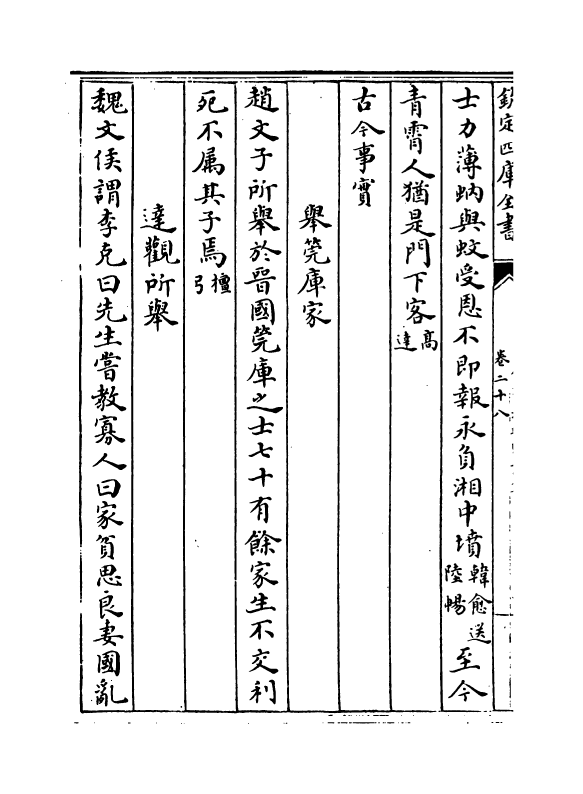 欽定四庫全書
卷二十八
士力薄蚋與蚊受恩不即報永負湘中墳韓愈送陸暢至今
青霄人猶是門下客高達
古今事實
舉筦庫家
趙文子所舉於晉國筦庫之士七十有餘家生不交利
死不属其子焉檀弓
達觀所舉
魏文侯謂李克曰先生嘗教寡人曰家貧思良妻國亂